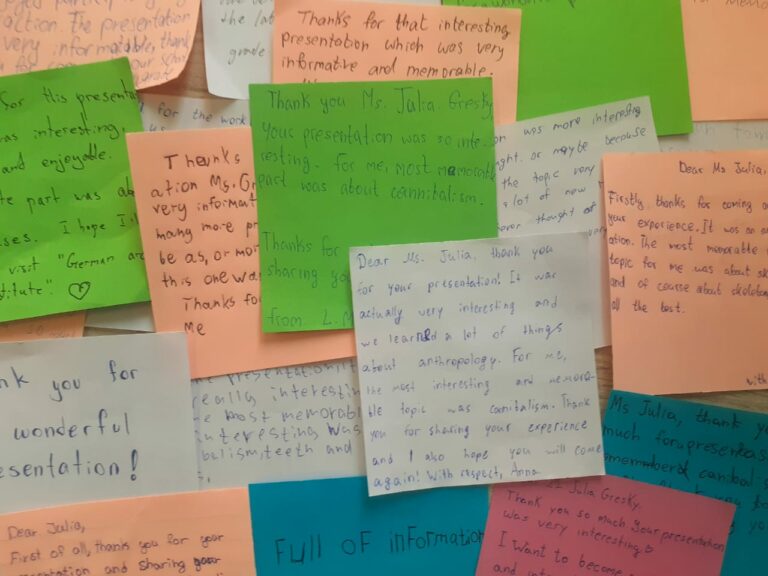 action. The presentation
very informatable, thank
the lat
grade
Thanks for that interesting
presentation which was very
informative and memorable.
for this presenta
was interesting,
and enjoyable.
te part was ab
ses. I hope I'll
visit "German ar
titute". ♡
for the work
Thanks
ation Ms. Gr
very informat
many more pr
be as, or mor
this one was
Thanks fo
me
Thank you Ms. Julia Gresky
your presentation was so inte-
resting. For me, most memorable
part was about cannitalism.
Thanks for
sharing you
from L.M
on was more interesting
ght. or maybe because
the topic very
a lot of new
ever thought of
very
Dear Ms Julia,
Firstly, thanks for coming an
your experience. It was an a
ation. The most memorable
topic for me was about sk
and of course about skeleton
all the best.
with
Dear Ms. Julia, thank you
for your presentation! It was
actually very interesting and
we learned a lot of things
about anthropology. For me,
the most interesting and memora-
ble topic was cannitalism. Thank
you for sharing your experience
and I also hope you will come
again! With respect, Anna
nk you for
wonderful
esentation!
he presentation, it
really interestin
he most memorabl
interesting was
balism, teeth and
Ms Julia, thank yo
much for presentasi
memberd canibals
Dear Julia,
First of all, thank you for your
entation and sharing your
Full of information
Julia Gresky.
Thank you so much, your presentation
was very interesting
I want to become
and int